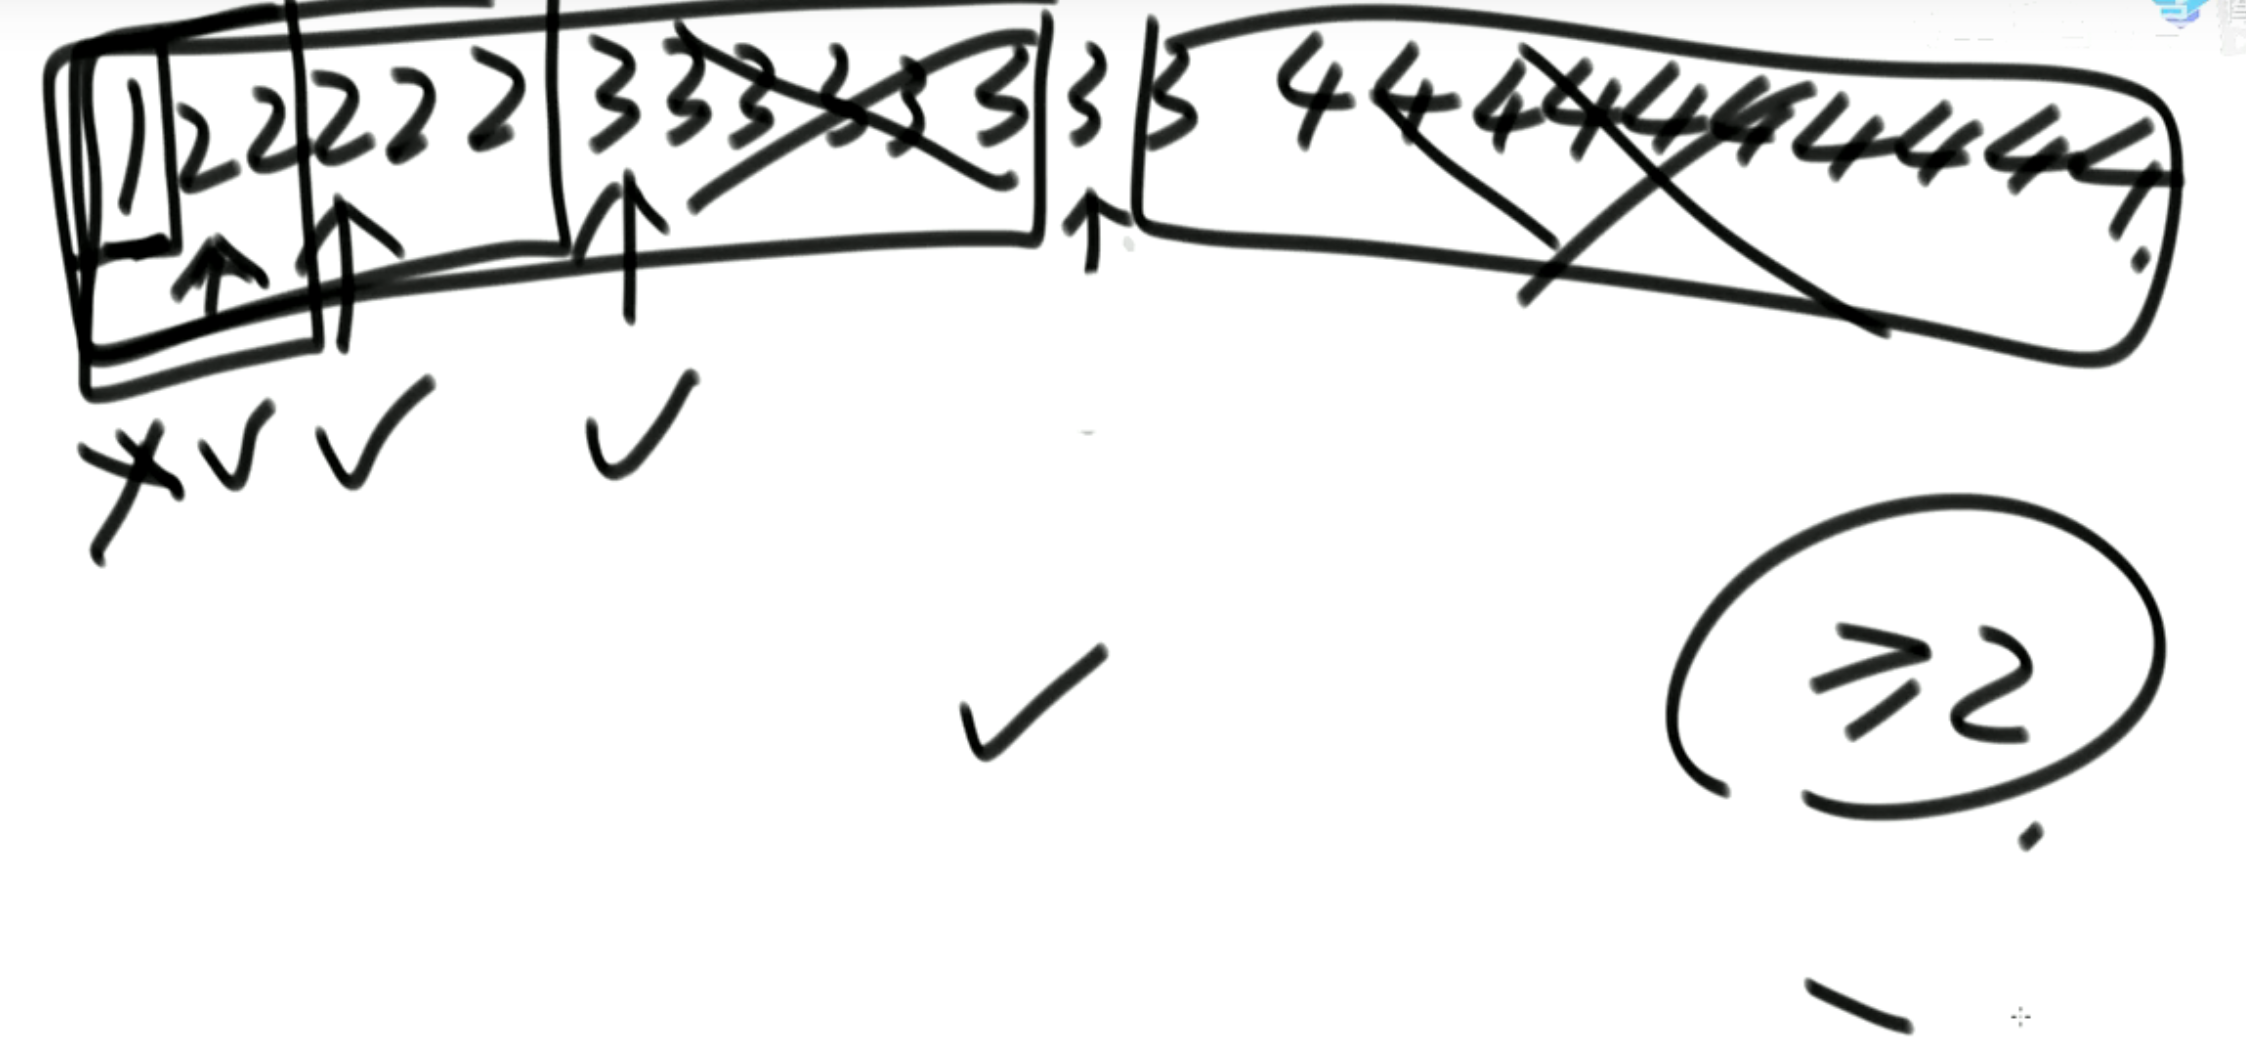 1 2 2 2 2 2 3 3 3 3 3 3 3 3 4 4 4 4 4 4 4 4 4 4
≥2